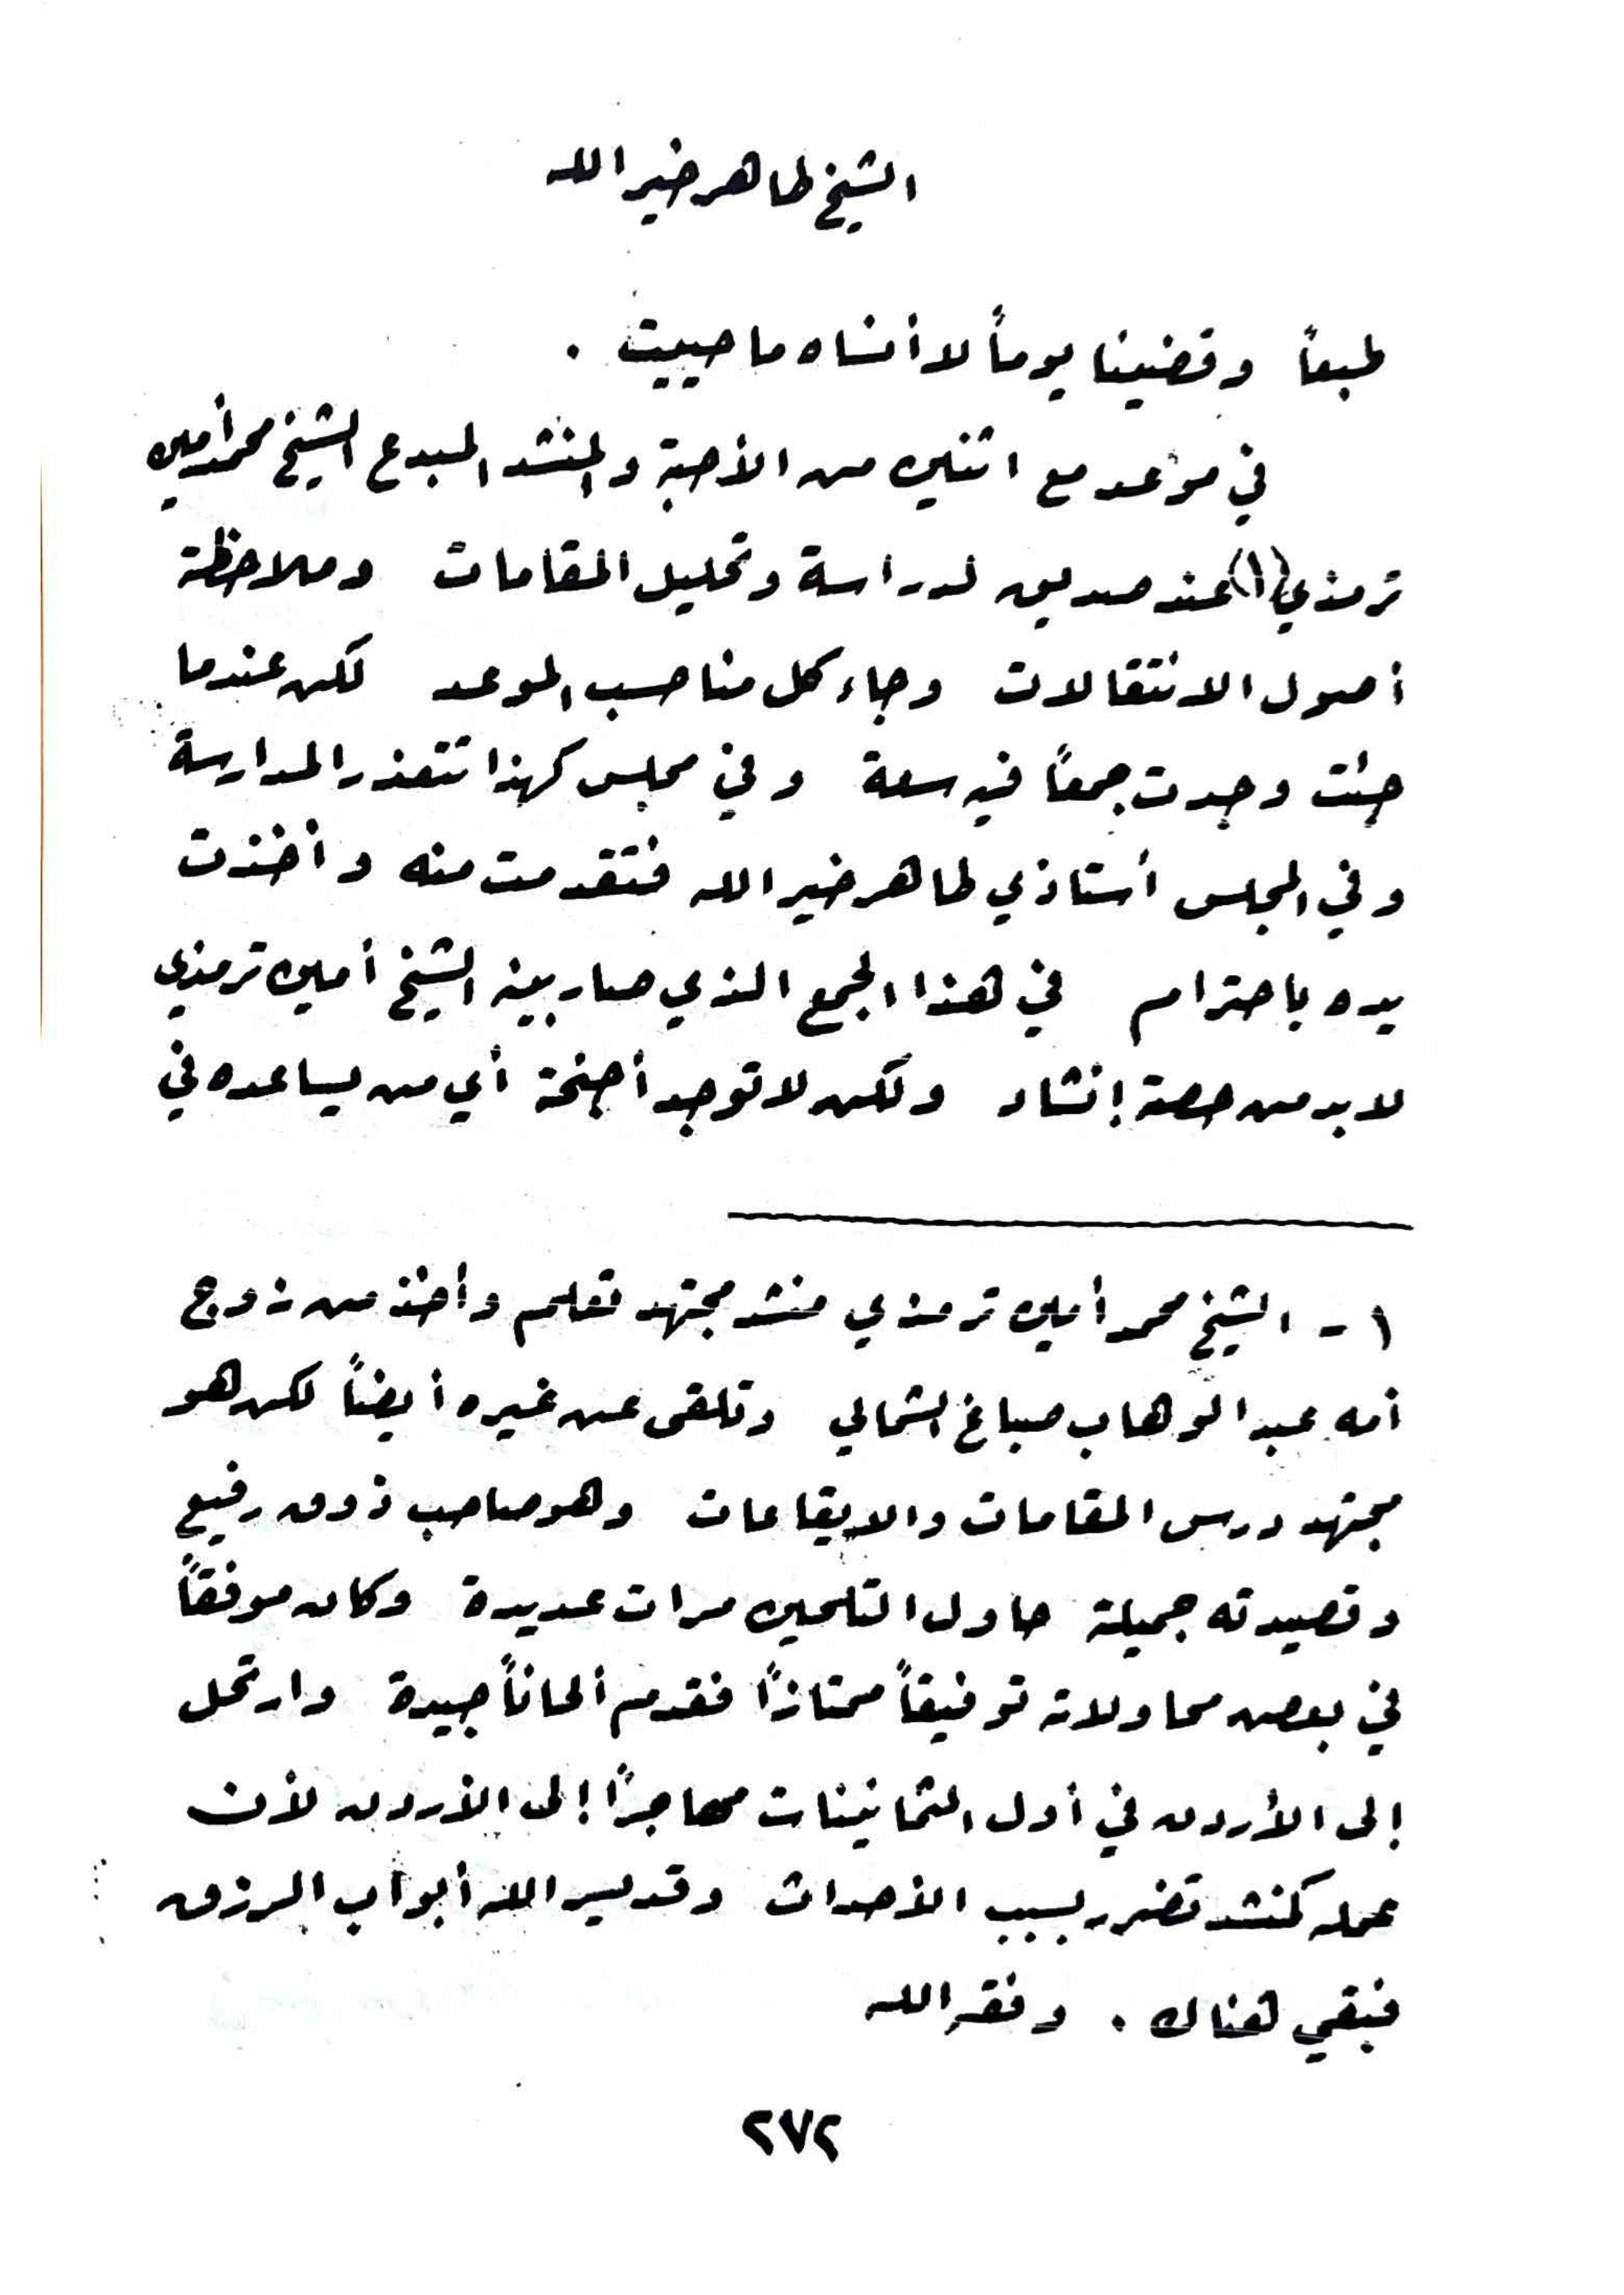 الشيخ طاهر خير الله
طبعاً وقضينا يوماً لا أنساه ما حييت .
في موعد مع اثنين من الأحبة والمنشد المبدع الشيخ محمد أمين
ترمذي (١) عند صديق لدراسة وتحليل المقامات وملاحظة
أصول الانتقالات وجاء كل منا حسب الموعد لكن عندما
جئت وجدت جمعاً فيه سعة وفي مجلس كهذا تتعذر المدارسة
وفي المجلس أستاذي طاهر خير الله فتقدمت منه وأخذت
يده باحترام في هذا الجمع الذي صار بينه الشيخ أمين ترمذي
لا بد من حصة إنشاد ولكن لا توجد أجنحة أي من يساعده في
١ - الشيخ محمد أمين ترمذي منشد مجتهد تعلم وأخذ من زوج
أمه عبد الوهاب صباغ الشمالي وتلقى عن غيره أيضاً لكن هو
مجتهد درس المقامات والايقاعات وهو صاحب ذوق رفيع
وقصيدته جميلة حاول التلحين مرات عديدة وكان موفقاً
في بعض محاولاته توفيقاً ممتازاً فقدم ألحاناً جيدة وارتحل
إلى الأردن في أول الثمانينات مهاجراً إلى الأردن لأن
عمله كمنشد تضرر بسبب الأحداث وقد يسر الله أبواب الرزق
فبقي هناك . وفقه الله
٢٧٢